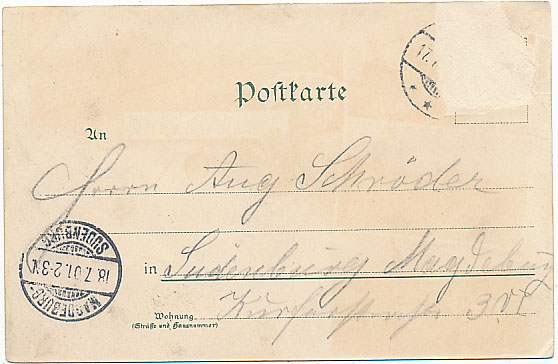 17.
Postkarte
An
Herrn Aug Schröder
in Sudenburg Magdeburg
Wohnung
(Straße und Hausnummer)
MAGDEBURG-
SUDENBURG
18.7.01.2-3N.